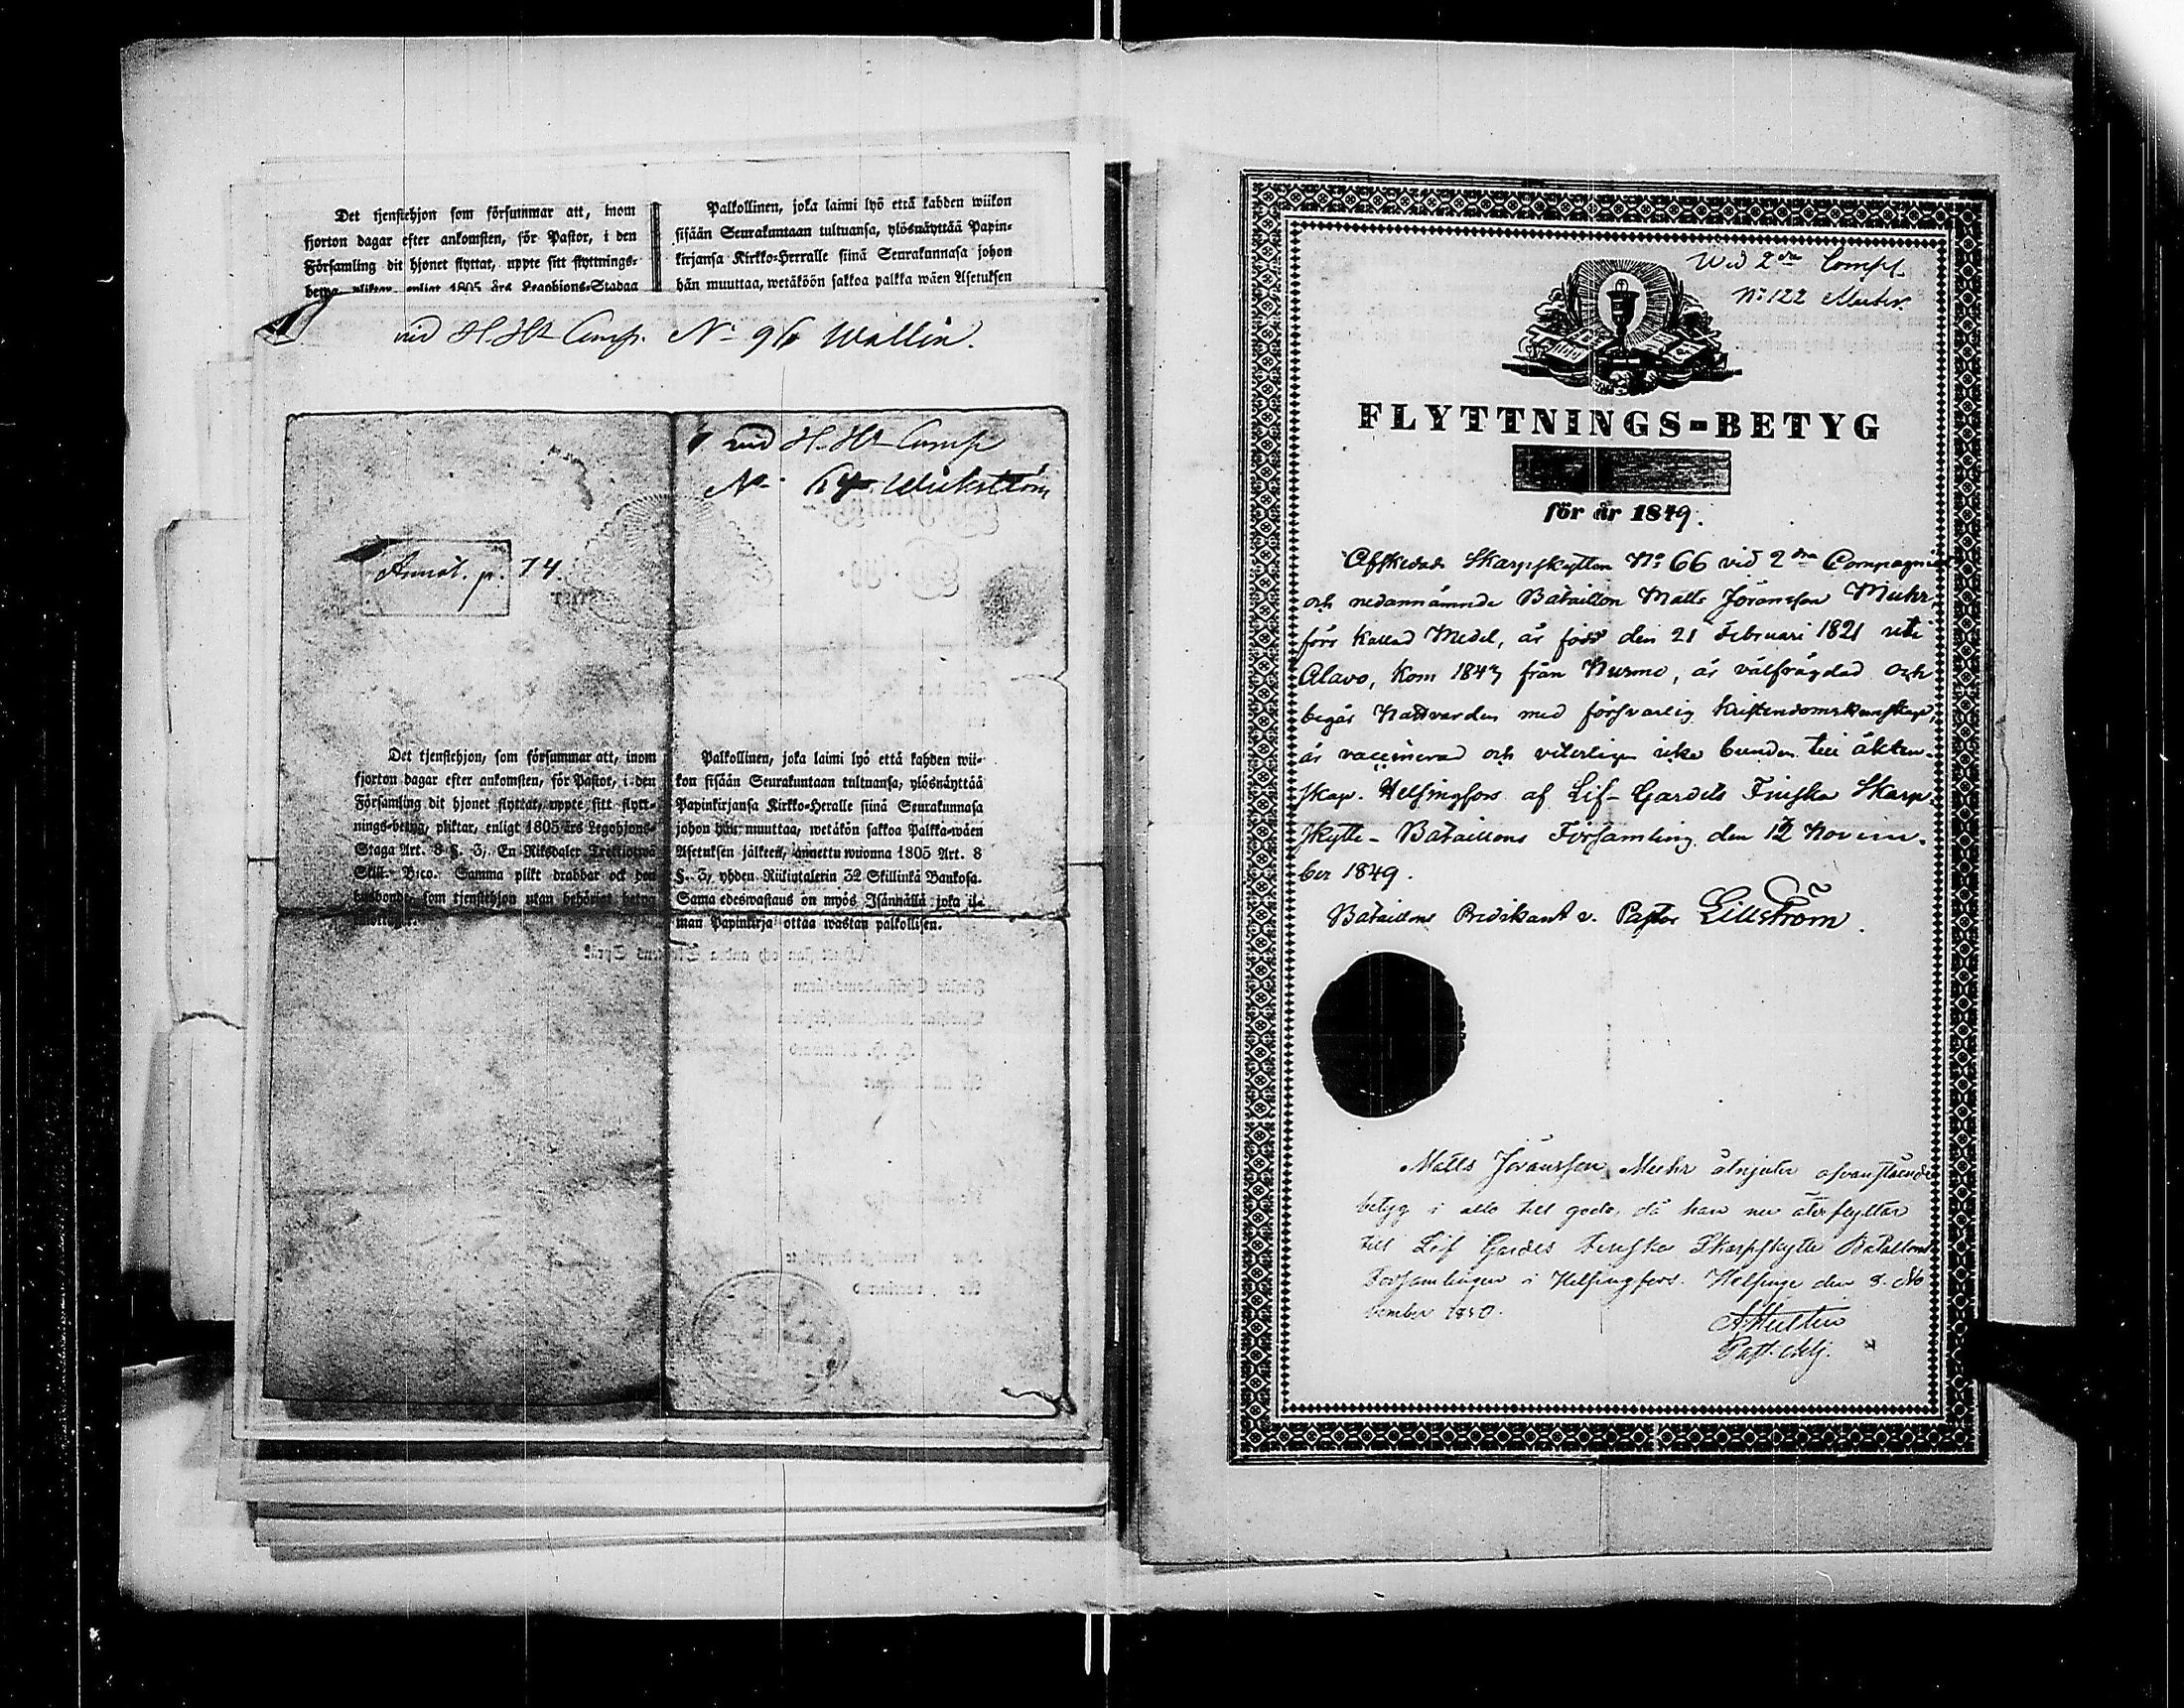 Det tjenstehjon som försummar att, inom
fjorton dagar efter ankomsten, för Pastor, i den
Församling dit hjonet flyttat, uppte sitt flyttnings-
betyg, pliktar, enligt 1805 års Legohjons-Stadga
Palkollinen, joka laimi lyö että kahden wiikon
sisään Seurakuntaan tultuansa, ylösnäyttää Papin-
kirjansa Kirkko-Herralle siinä Seurakunnasa johon
hän muuttaa, wetäköön sakkoa palkka wäen Asetuksen
vid H. Ht Comp. No 96 Wallin.
vid H. Ht Comp
No 64 Wickström
Annot. p. 74.
Det tjenstehjon, som försummar att, inom
fjorton dagar efter ankomsten, för Pastor, i den
Församling dit hjonet flyttat, uppte sitt flytt-
nings-betyg, pliktar, enligt 1805 års Legohjons-
Staga Art. 8 §. 3, En Riksdaler Trettiotwå
Skill. B:co. Samma plikt drabbar ock den
husbonde, som tjenstehjon utan behörigt betyg
mottager.
Palkollinen, joka laimi lyö että kahden wii-
kon sisään Seurakuntaan tultuansa, ylösnäyttää
Papinkirjansa Kirkko-Heralle siinä Seurakunnasa
johon hän muuttaa, wetäkön sakkoa Palkka-wäen
Asetuksen jälkeen, annettu wuonna 1805 Art. 8
§. 3, yhden Riikintalerin 32 Skillinkä Bankosa.
Sama edeswastaus on myös Isännällä joka il-
man Papinkirja ottaa wastan palkollisen.
Wid 2dra Comp.
No 122 Muhr.
FLYTTNINGS-BETYG
för år 1849.
Afskedade Skarpskytten No 66 vid 2dra Compagniet
och nedannämnde Bataillon Matts Jöransson Muhr,
förr kallad Medel, är född den 21 Februari 1821 uti
Alavo, kom 1847 från Nurmo, är välfrägdad och
begår Nattvarden med försvarlig kristendomskunskap,
är vaccinerad och veterligen icke bunden till äkten-
skap. Helsingfors af Lif-Gardets Finska Skarp-
skytte-Bataillons Församling den 12 Novem-
ber 1849.
Bataillons Predikant v. Pastor Lillström.
Matts Jöransson Muhr åtnjuter ofvanstående
betyg i allo till godo, då han nu återflyttar
till Lif Gardes Finska Skarpskytte Bataillons
Församlingen i Helsingfors. Helsinge den 8. No
vember 1850.
Past. Adj.